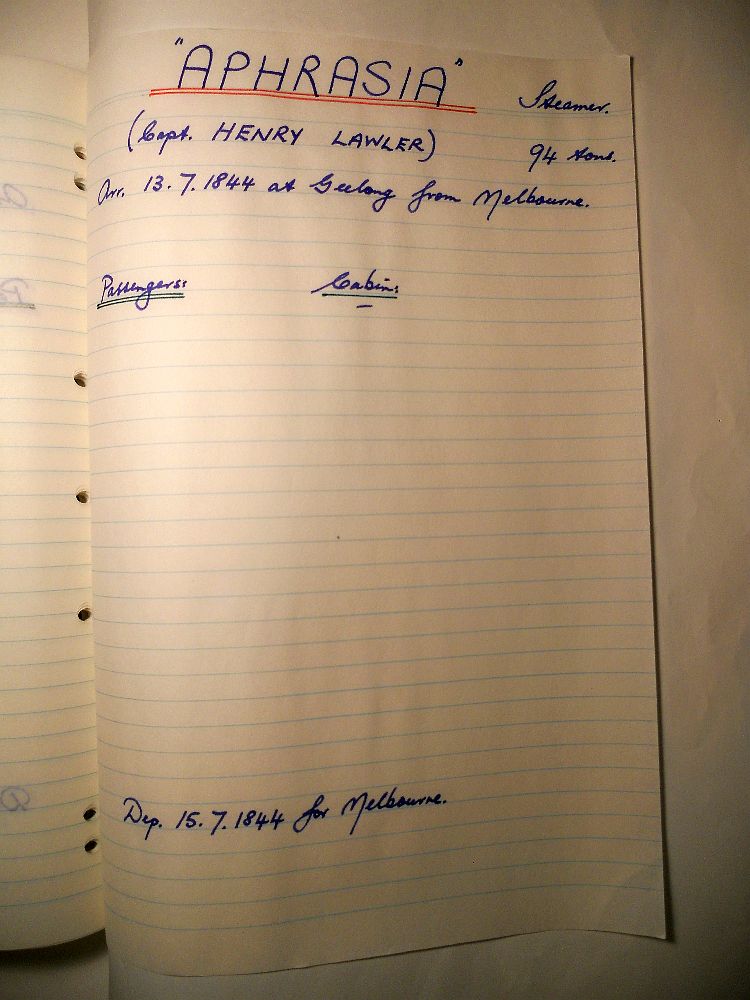 "APHRASIA"
Steamer.
(Capt. HENRY LAWLER)
94 tons.
Arr. 13.7.1844 at Geelong from Melbourne.
Passengers: Cabin:
Dep. 15.7.1844 for Melbourne.